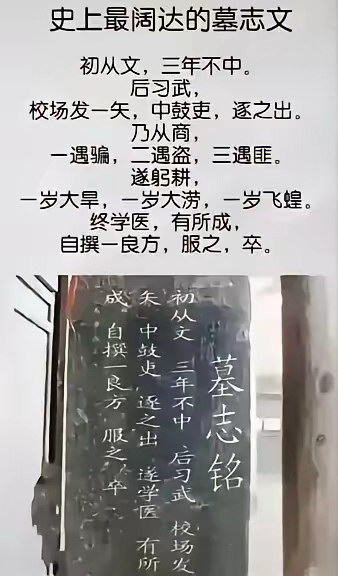 史上最阔达的墓志文
初从文，三年不中。
后习武，
校场发一矢，中鼓吏，逐之出。
乃从商，
一遇骗，二遇盗，三遇匪。
遂躬耕，
一岁大旱，一岁大涝，一岁飞蝗。
终学医，有所成，
自撰一良方，服之，卒。
墓志铭
初从文 三年不中 后习武 校场发
矢 中鼓吏 逐之出 遂学医 有所
成。自撰一良方 服之 卒